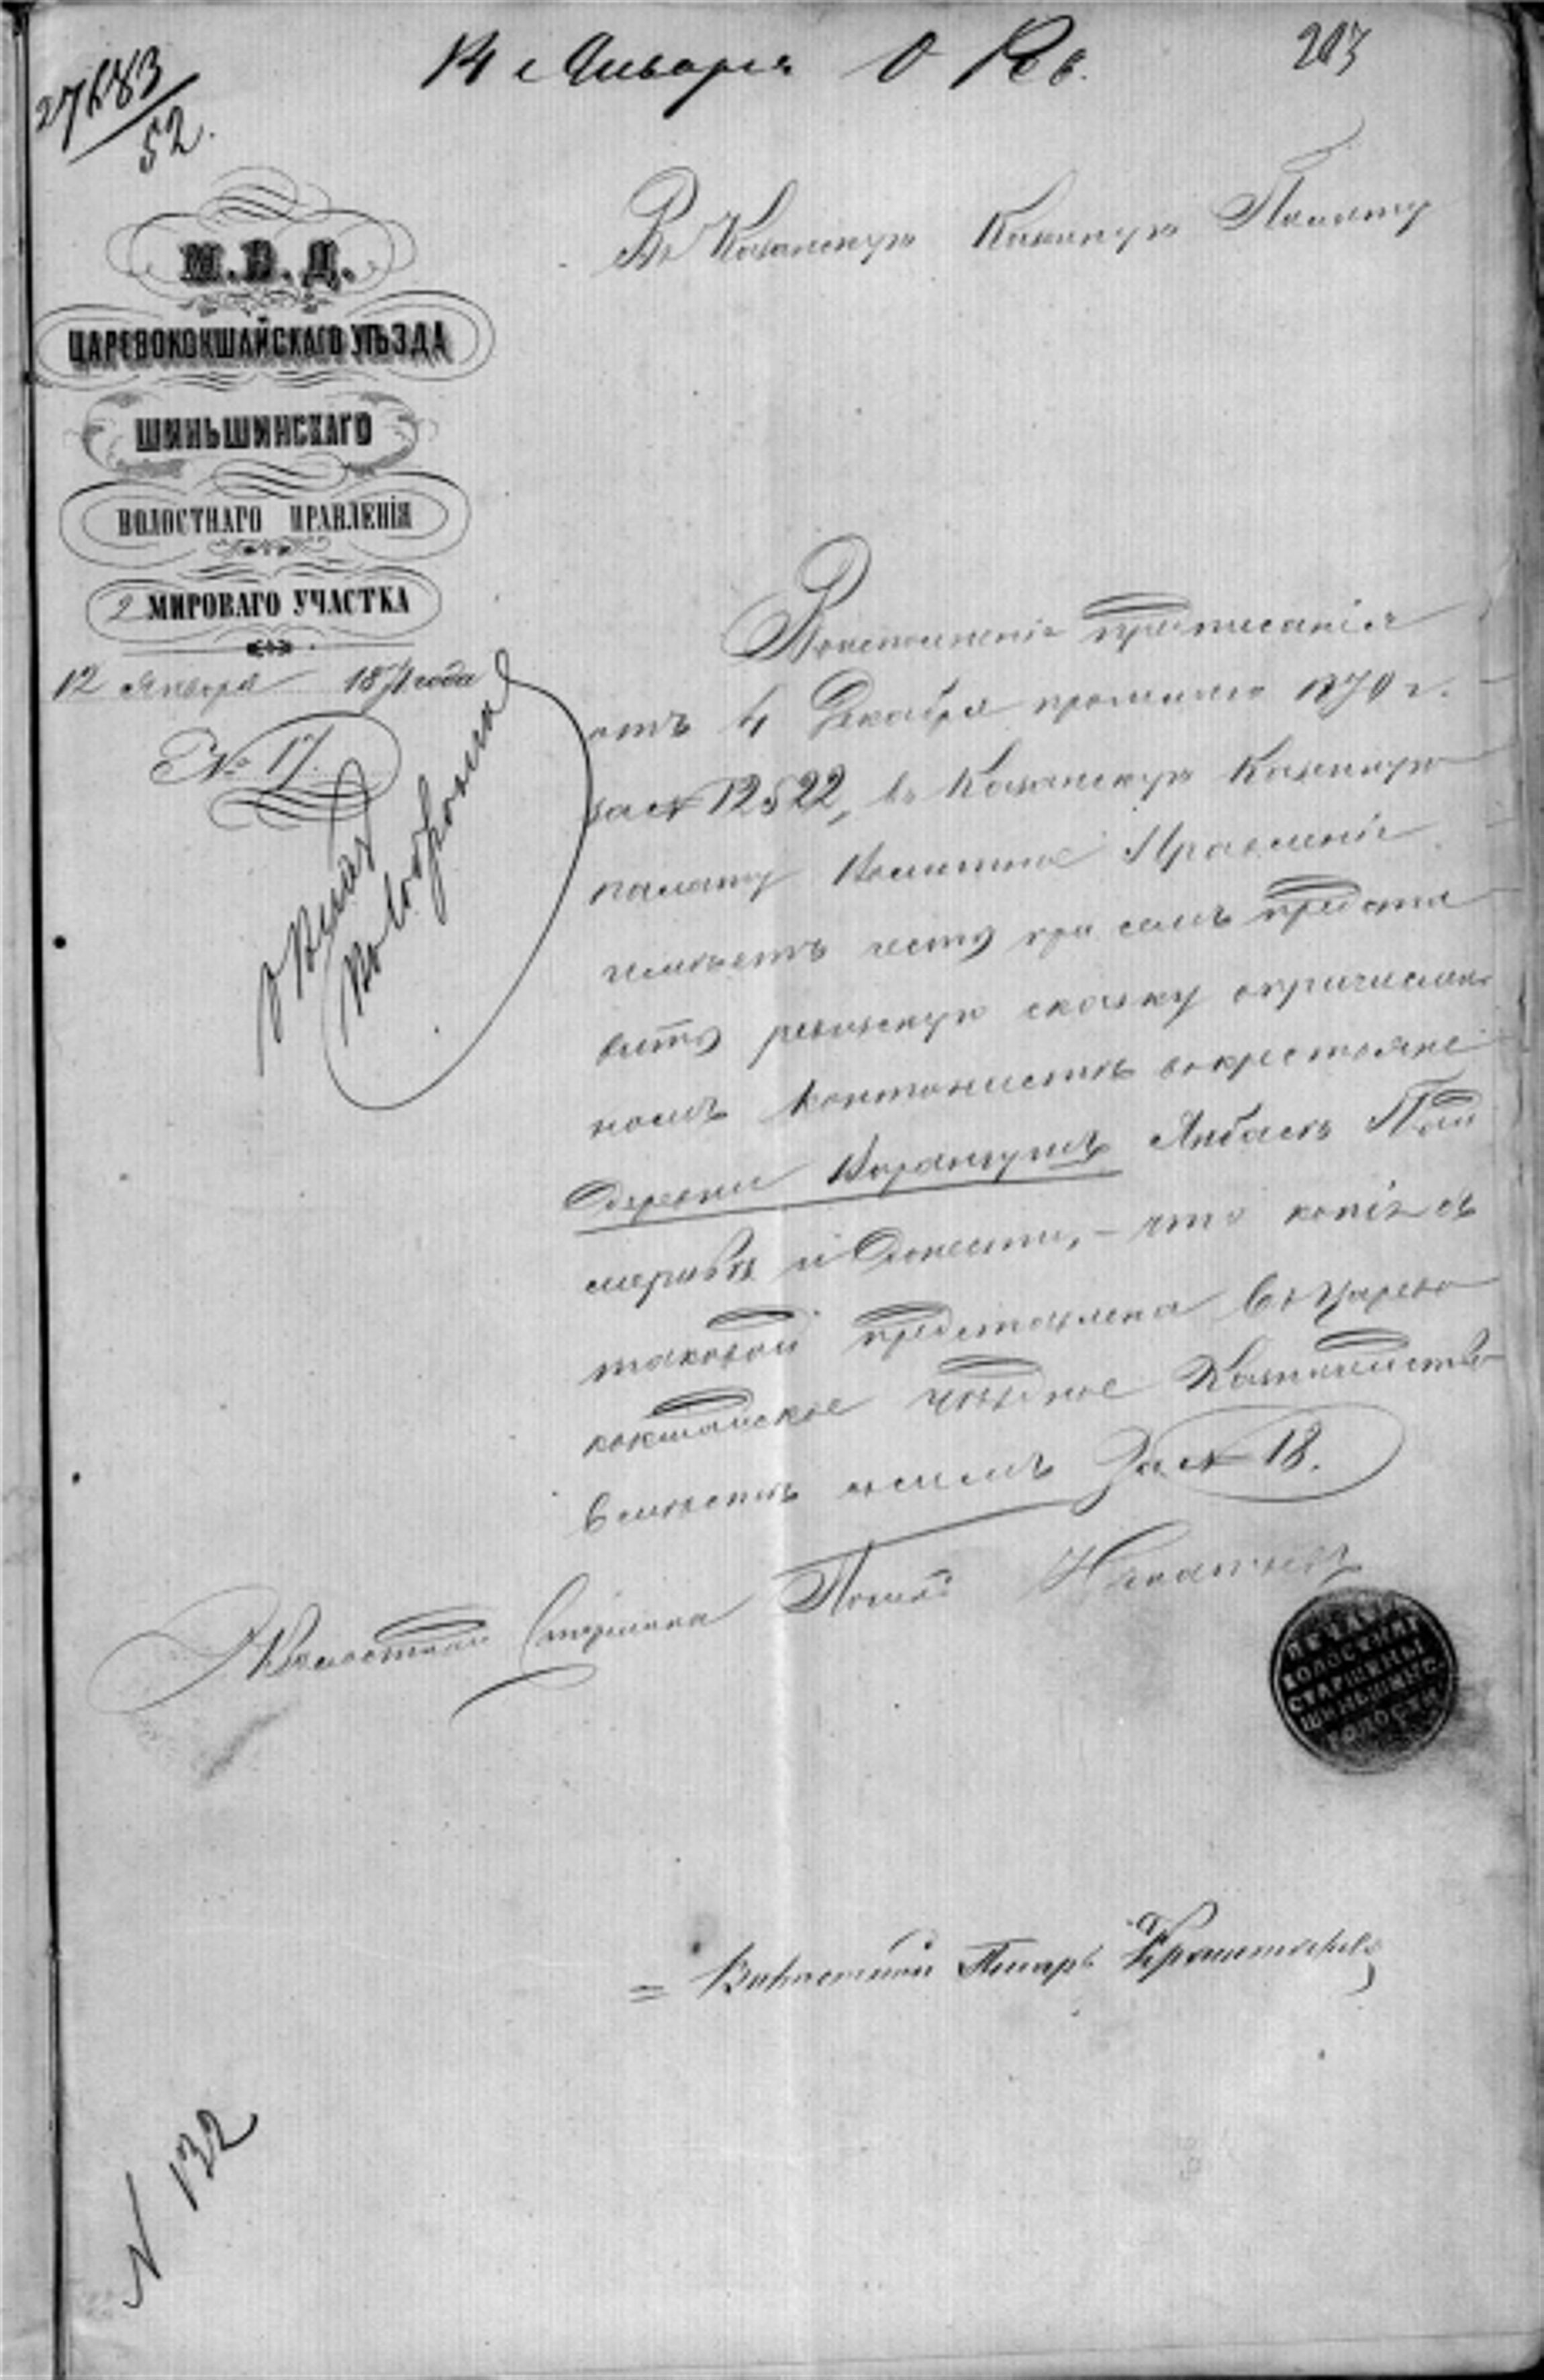 14 Января
203
27683/52.
Въ Казанскую Казенную Палату
М. В. Д.
ЦАРЕВОКОКШАЙСКАГО УѢЗДА
ШИНЬШИНСКАГО
ВОЛОСТНАГО ПРАВЛЕНІЯ
2 МИРОВАГО УЧАСТКА
12 Января 1871 года
№ 17.
Воисполненіе предписанія
отъ 4 Декабря прошлаго 1870 г.
за № 12522, въ Казанскую Казенную
палату Волостное Правленіе
имѣетъ честь при семъ предста
вить ревизскую сказку опричислен
номъ кантонистѣ вокрестьяне
деревни Янбаевъ Пай
и донести, – что копія съ
таковой представлена въ Царево
кокшайское уѣздное Казначейство
вмѣстѣ ссимъ За № 18.
Волостной Старшина
ПЕЧАТЬ
ВОЛОСТНАГО
СТАРШИНЫ
ШИНЬШИНС-
ВОЛОСТИ
= Волостной Писарь
N 132